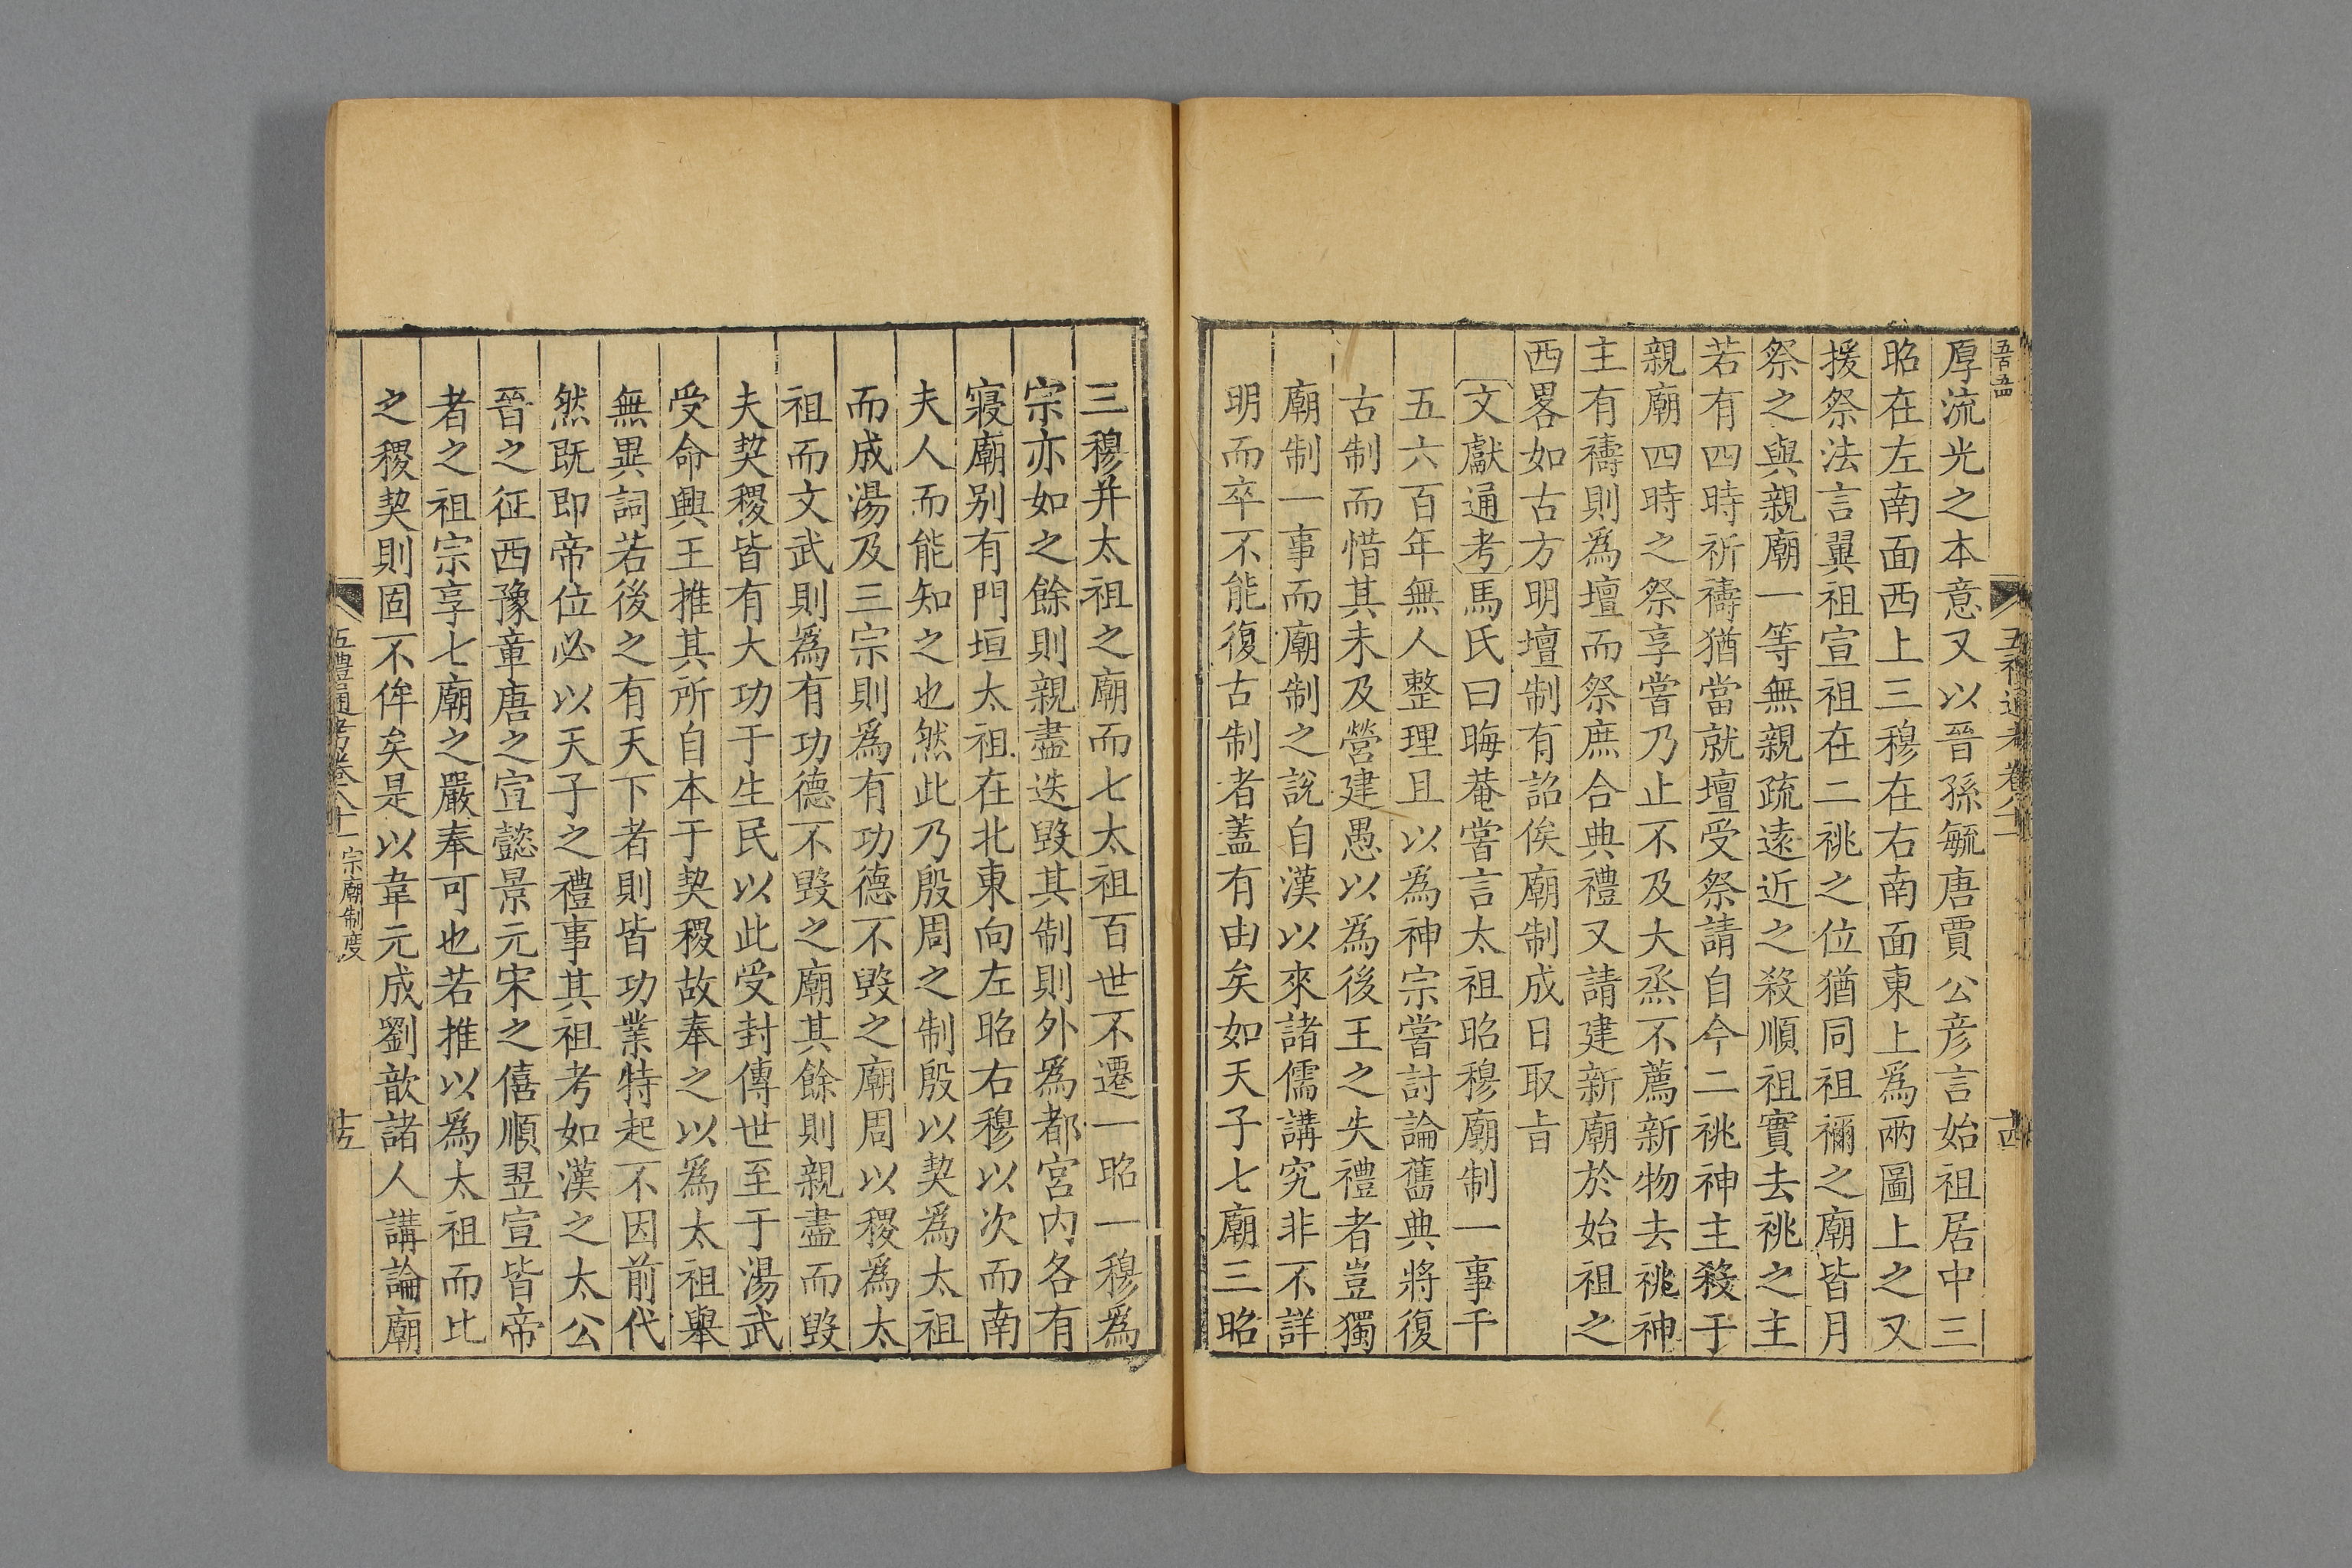 五百五四
五禮通考卷八十一
十四
厚流光之本意又以晉孫毓唐賈公彦言始祖居中三
昭在左南面西上三穆在右南面東上爲兩圖上之又
援祭法言翼祖宣祖在二祧之位猶同祖禰之廟皆月
祭之與親廟一等無親疏遠近之殺順祖實去祧之主
若有四時祈禱猶當就壇受祭請自今二祧神主殺于
親廟四時之祭享嘗乃止不及大烝不薦新物去祧神
主有禱則爲壇而祭庶合典禮又請建新廟於始祖之
西畧如古方明壇制有詔俟廟制成日取旨
文獻通考馬氏曰晦菴嘗言太祖昭穆廟制一事千
五六百年無人整理且以為神宗嘗討論舊典將復
古制而惜其未及營建愚以爲後王之失禮者豈獨
廟制一事而廟制之說自漢以來諸儒講究非不詳
明而卒不能復古制者蓋有由矣如天子七廟三昭
三穆并太祖之廟而七太祖百世不遷一昭一穆爲
宗亦如之餘則親盡迭毀其制則外爲都宮内各有
寢廟别有門垣太祖在北東向左昭右穆以次而南
夫人而能知之也然此乃殷周之制殷以契爲太祖
而成湯及三宗則爲有功德不毀之廟周以稷為太
祖而文武則爲有功德不毀之廟其餘則親盡而毀
夫契稷皆有大功于生民以此受封傳世至于湯武
受命興王推其所自本于契稷故奉之以爲太祖舉
無異詞若後之有天下者則皆功業特起不因前代
然既即帝位必以天子之禮事其祖考如漢之太公
晉之征西豫章唐之宣懿景元宋之僖順翌宣皆帝
者之祖宗享七廟之嚴奉可也若推以爲太祖而比
之稷契則固不侔矣是以韋元成劉歆諸人講論廟
五禮通考卷八十一 宗廟制度
十五